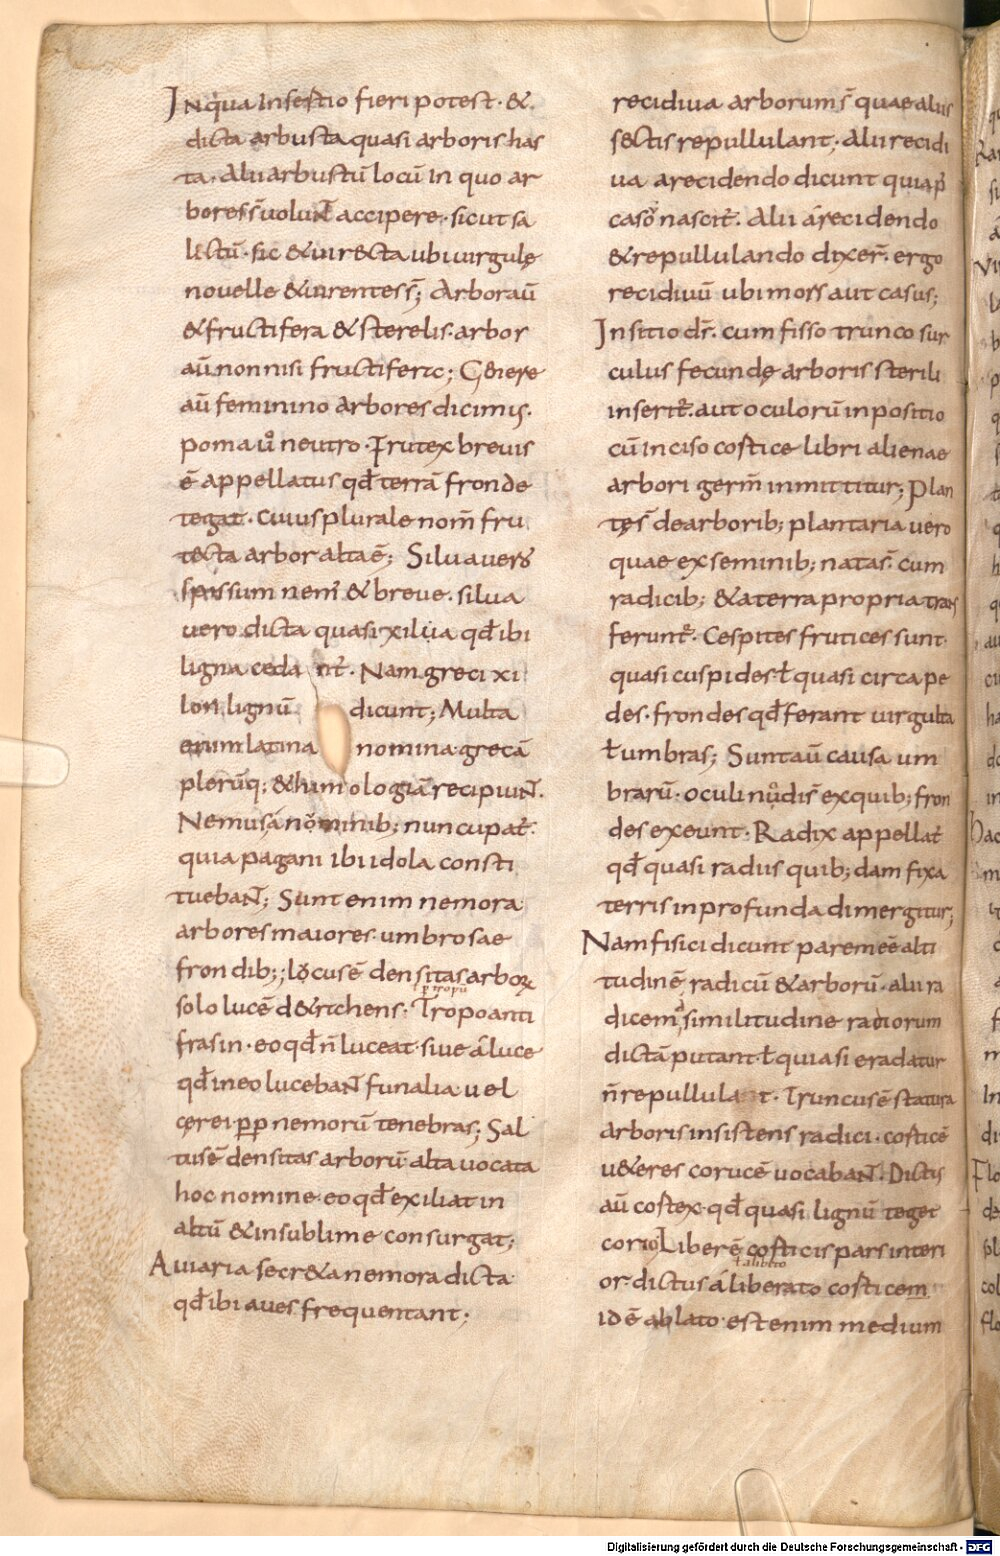 In qua insestio fieri potest · &
dicta arbusta quasi arboris has
ta · Alii arbustū locū in quo ar
bores s̄ volun̄t accipere · sicut sa
lictū · sic & uirecta ubi uirgulę
novelle & uirentes s̄; Arbor aū
& fructifera & sterelis · arbor
aū non nisi fructifera; Genere
aū feminino arbores dicimus ·
poma ū neutro · Frutex brevis
ē appellatus qđ terrā fronde
tegat · cuius plurale nom̄ fru
tecta arbor alta ē; Silua uero
spissum nem̄ & breve · silua
uero dicta quasi xilua qđ ibi
ligna cedant̄ · Nam greci xi
lon lignū dicunt; Multa
enim latina nomina grecā
plerūq; &himologiā recipiun̄t ·
Nemus á nominib; nuncupat̄ ·
quia pagani ibi idola consti
tueban̄t; Sunt enim nemora
arbores maiores umbrosae
frondib; ; locus ē densitas arborꝝ
solo lucē d&rahens · Tropo anti
frasin · eo qđ n̄ luceat · siue á luce
qđ in eo luceban̄t funalia uel
cęrei ꝓpt̄ nemorū tenebras; Sal
tus ē densitas arborū alta uocata
hoc nomine · eo qđ exiliat in
altū & in sublime consurgat;
Auiaria secr&a nemora dicta
qđ ibi aues frequentant;
recidiua arborum s̄ quae aliis
sectis repullulant; Alii recidi
ua a recidendo dicunt quia p̄
casō nascit̄ · Alii á recidendo
& repullulando dixer̄ · ergo
recidiuū ubi mors aut casus;
Insitio dr̄ · cum fisso trunco sur
culus fecundę arboris sterili
inserit̄ · aut oculorū inpositio
cū inciso cortice libri alienae
arbori germ̄ inmittitur; Plan
tę s̄ de arborib; plantaria uero
quae ex seminib; nata s̄ · cum
radicib; & a terra propria trans
ferunt̄ · Cespites frutices sunt
quasi cuspides · ł quasi circa pe
des · frondes qđ ferant uirgulta
ł umbras; Sunt aū causa um
brarū · oculi nodi s̄ ex quib; fron
des exeunt · Radix appellat̄
qđ quasi radiis quib;dam fixa
terris in profunda dimergitur;
Nam fisici dicunt parem eē alti
tudinē radicū & arborū · alii ra
dicem á similitudine radiorum
dictā putant · ł quia si eradatur
n̄ repullulat · Truncus ē statura
arboris insistens radici · corticē
u&eres corucē uocaban̄t · Dictis
aū cortex · qđ quasi lignū teget
corio Liber ē corticis pars interi
or · dictus á liberato corticem
id ē ablato · est enim medium